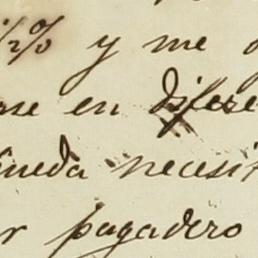 1/2% y me
me en difere
ineda necesit
r pagadero